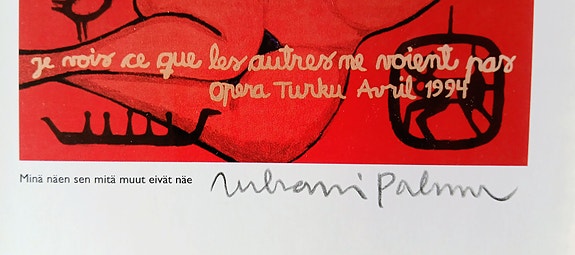 je vois ce que les autres ne voient pas
Opera Turku Avril 1994
Minä näen sen mitä muut eivät näe
Juhani Palmu